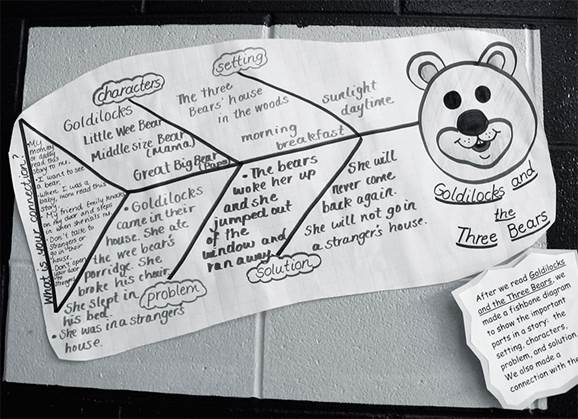 characters
Goldilocks
Little Wee Bear
Middle size Bear
(Mama)
Great Big Bear (Papa)
setting
The three
Bears' house
in the woods
sunlight
daytime
morning
breakfast
What is your connection?
My
mommy
or daddy
read this
story to me.
I want to see
a bear.
When I was a
baby, mom read this
My friend Emily knocks
on my door and steps
in when she visits me
Don't talk to
strangers or
go in their
house.
Don't open
your door
to
strangers
• Goldilocks
came in their
house. She ate
the wee bear's
porridge. She
broke his chair.
She slept in
his bed.
• She was in a stranger's
house.
problem
• The bears
woke her up
and she
jumped out
of the
window and
ran away.
She will
never come
back again.
She will not go in
a stranger's house.
solution
Goldilocks and
the
Three Bears
After we read Goldilocks
and the Three Bears, we
made a fishbone diagram
to show the important
parts in a story: the
setting, characters,
problem, and solution.
We also made a
connection with the